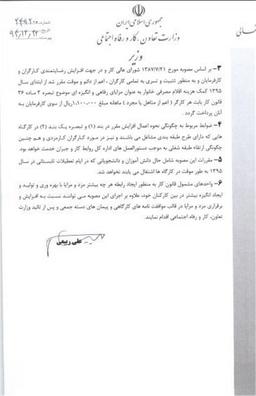 جمهوری اسلامی ایران
وزارت تعاون، کار و رفاه اجتماعی
وزیر
۳- بر اساس مصوبه مورخ ۱۳۸۷/۷/۲۱ شورای عالی کار و در جهت افزایش رضایتمندی کارگران و
کارفرمایان و به منظور تثبیت و تسری به تمامی کارگران، اعم از دائم و موقت مقرر شد از ابتدای سال
۱۳۹۵ کمک هزینه اقلام مصرفی خانوار به عنوان مزایای رفاهی و انگیزه ای موضوع تبصره ۳ ماده ۳۶
قانون کار بابت هر کارگر ( اعم از متاهل یا مجرد ) ماهانه مبلغ ۱،۱۰۰،۰۰۰ ریال از سوی کارفرمایان به
آنان پرداخت گردد.
۴- ضوابط مربوط به چگونگی نحوه اعمال افزایش مقرر در بند (۱) و تبصره یک بند (۲) در کارگاه
هایی که دارای طرح طبقه بندی مشاغل می باشند و نیز در مورد کارگران کارمزدی و هم چنین
چگونگی ارتقاء طبقه شغلی به موجب دستورالعمل های اداره کل روابط کار و جبران خدمت خواهد بود.
۵- مقررات این مصوبه شامل حال دانش آموزان و دانشجویانی که در ایام تعطیلات تابستانی در سال
۱۳۹۵ به طور موقت در کارگاه ها اشتغال می یابند نخواهد شد.
۶- واحدهای مشمول قانون کار به منظور ایجاد رابطه هر چه بیشتر مزد و مزایا با بهره وری و تولید و
ایجاد انگیزه بیشتر در بین کارکنان خود، علاوه بر اجرای این مصوبه می توانند نسبت به افزایش و
برقراری مزد و مزایا در قالب موافقت نامه های کارگاهی و پیمان های دسته جمعی و پس از تائید وزارت
تعاون، کار و رفاه اجتماعی اقدام نمایند.
علی ربیعی